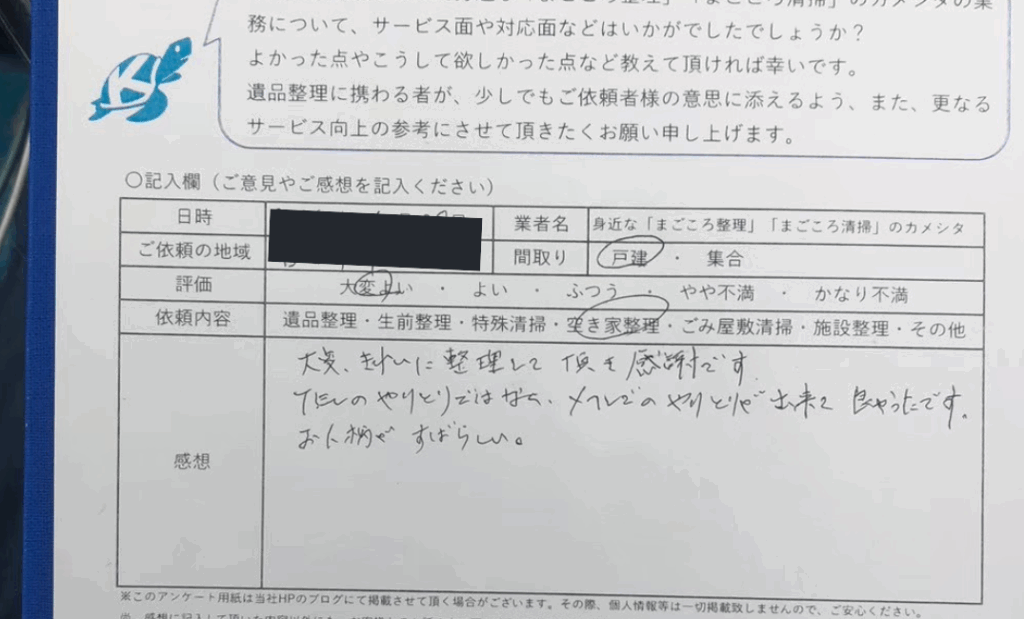 「まごころ清掃」のカメシタの業
務について、サービス面や対応面などはいかがでしたでしょうか？
よかった点やこうして欲しかった点など教えて頂ければ幸いです。
遺品整理に携わる者が、少しでもご依頼者様の意思に添えるよう、また、更なる
サービス向上の参考にさせて頂きたくお願い申し上げます。
〇記入欄（ご意見やご感想を記入ください）
日時 業者名 身近な「まごころ整理」「まごころ清掃」のカメシタ
ご依頼の地域 間取り 戸建 ・ 集合
評価 大変よい ・ よい ・ ふつう ・ やや不満 ・ かなり不満
依頼内容 遺品整理・生前整理・特殊清掃・空き家整理・ごみ屋敷清掃・施設整理・その他
大変、きれいに整理して頂き感謝です
TELのやりとりではなく、メールでのやりとりが出来て良かったです。
お人柄がすばらしい。
感想
※このアンケート用紙は当社HPのブログにて掲載させて頂く場合がございます。その際、個人情報等は一切掲載致しませんので、ご安心ください。